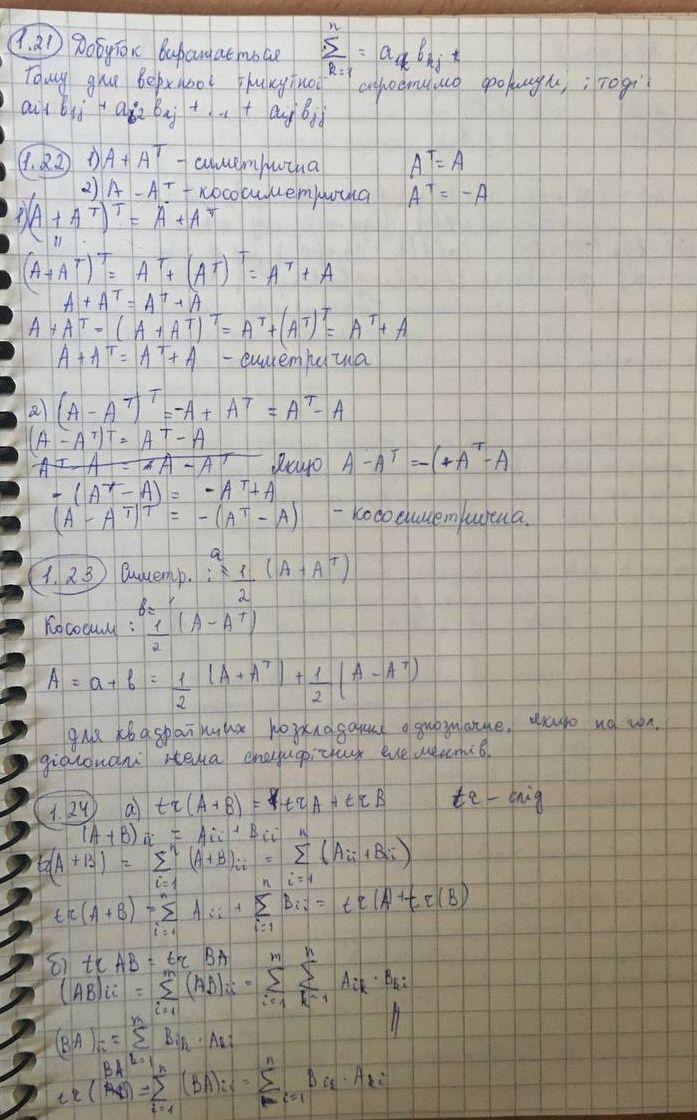 1.21 Добуток виражається \sum_{k=1}^{n} = a_{ik} b_{kj}
Тому для верхньої трикутної спростимо формули, і тоді:
a_{i1} b_{1j} + a_{i2} b_{2j} + ... + a_{ij} b_{jj}
1.22 1) A + A^T - симетрична A^T = A
2) A - A^T - кососиметрична A^T = -A
1) (A + A^T)^T = A + A^T
"
(A + A^T)^T = A^T + (A^T)^T = A^T + A
A + A^T = A^T + A
A + A^T = (A + A^T)^T = A^T + (A^T)^T = A^T + A
A + A^T = A^T + A - симетрична
2) (A - A^T)^T = -A + A^T = A^T - A
(A - A^T)^T = A^T - A
A^T - A = A - A^T Якщо A - A^T = -(+A^T - A
-(A^T - A) = -A^T + A
(A - A^T)^T = -(A^T - A) - кососиметрична.
1.23 Симетр. : a = \frac{1}{2} (A + A^T)
Кососим : b = \frac{1}{2} (A - A^T)
A = a + b = \frac{1}{2} (A + A^T) + \frac{1}{2} (A - A^T)
для квадратних розкладання однозначне, якщо на гол.
діагоналі нема специфічних елементів.
1.24 a) tr(A + B) = tr A + tr B tr - слід
(A + B)_{ii} = A_{ii} + B_{ii}
tr(A + B) = \sum_{i=1}^{n} (A + B)_{ii} = \sum_{i=1}^{n} (A_{ii} + B_{ii})
tr(A + B) = \sum_{i=1}^{n} A_{ii} + \sum_{i=1}^{n} B_{ii} = tr(A + tr(B)
б) tr AB = tr BA
(AB)_{ii} = \sum_{i=1}^{m} (AB)_{ii} = \sum_{i=1}^{m} \sum_{k=1}^{n} A_{ik} · B_{ki}
||
(BA)_{ii} = \sum_{k=1}^{m} B_{ik} · A_{ki}
tr(BA) = \sum_{i=1}^{n} (BA)_{ii} = \sum_{i=1}^{n} B_{ik} · A_{ki}